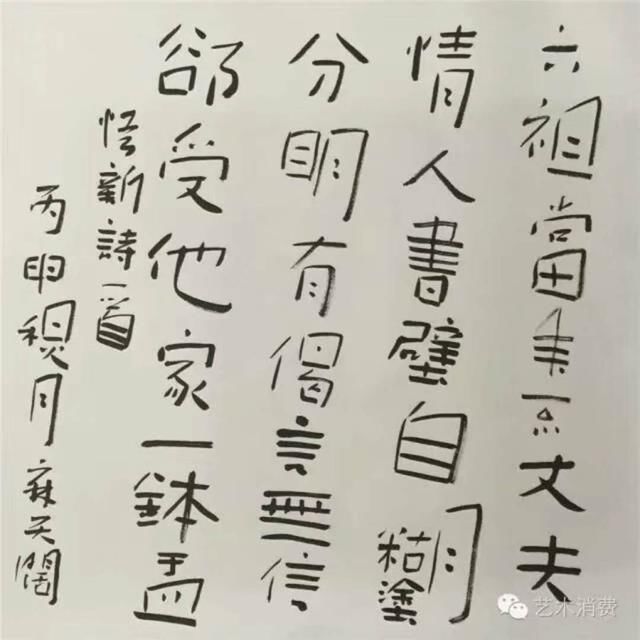 六祖當年不丈夫
情人書壁自糊塗
分明有偈言無信
郤受他家一鉢盂
悟新詩一首
丙申月麻天闊
艺术消费